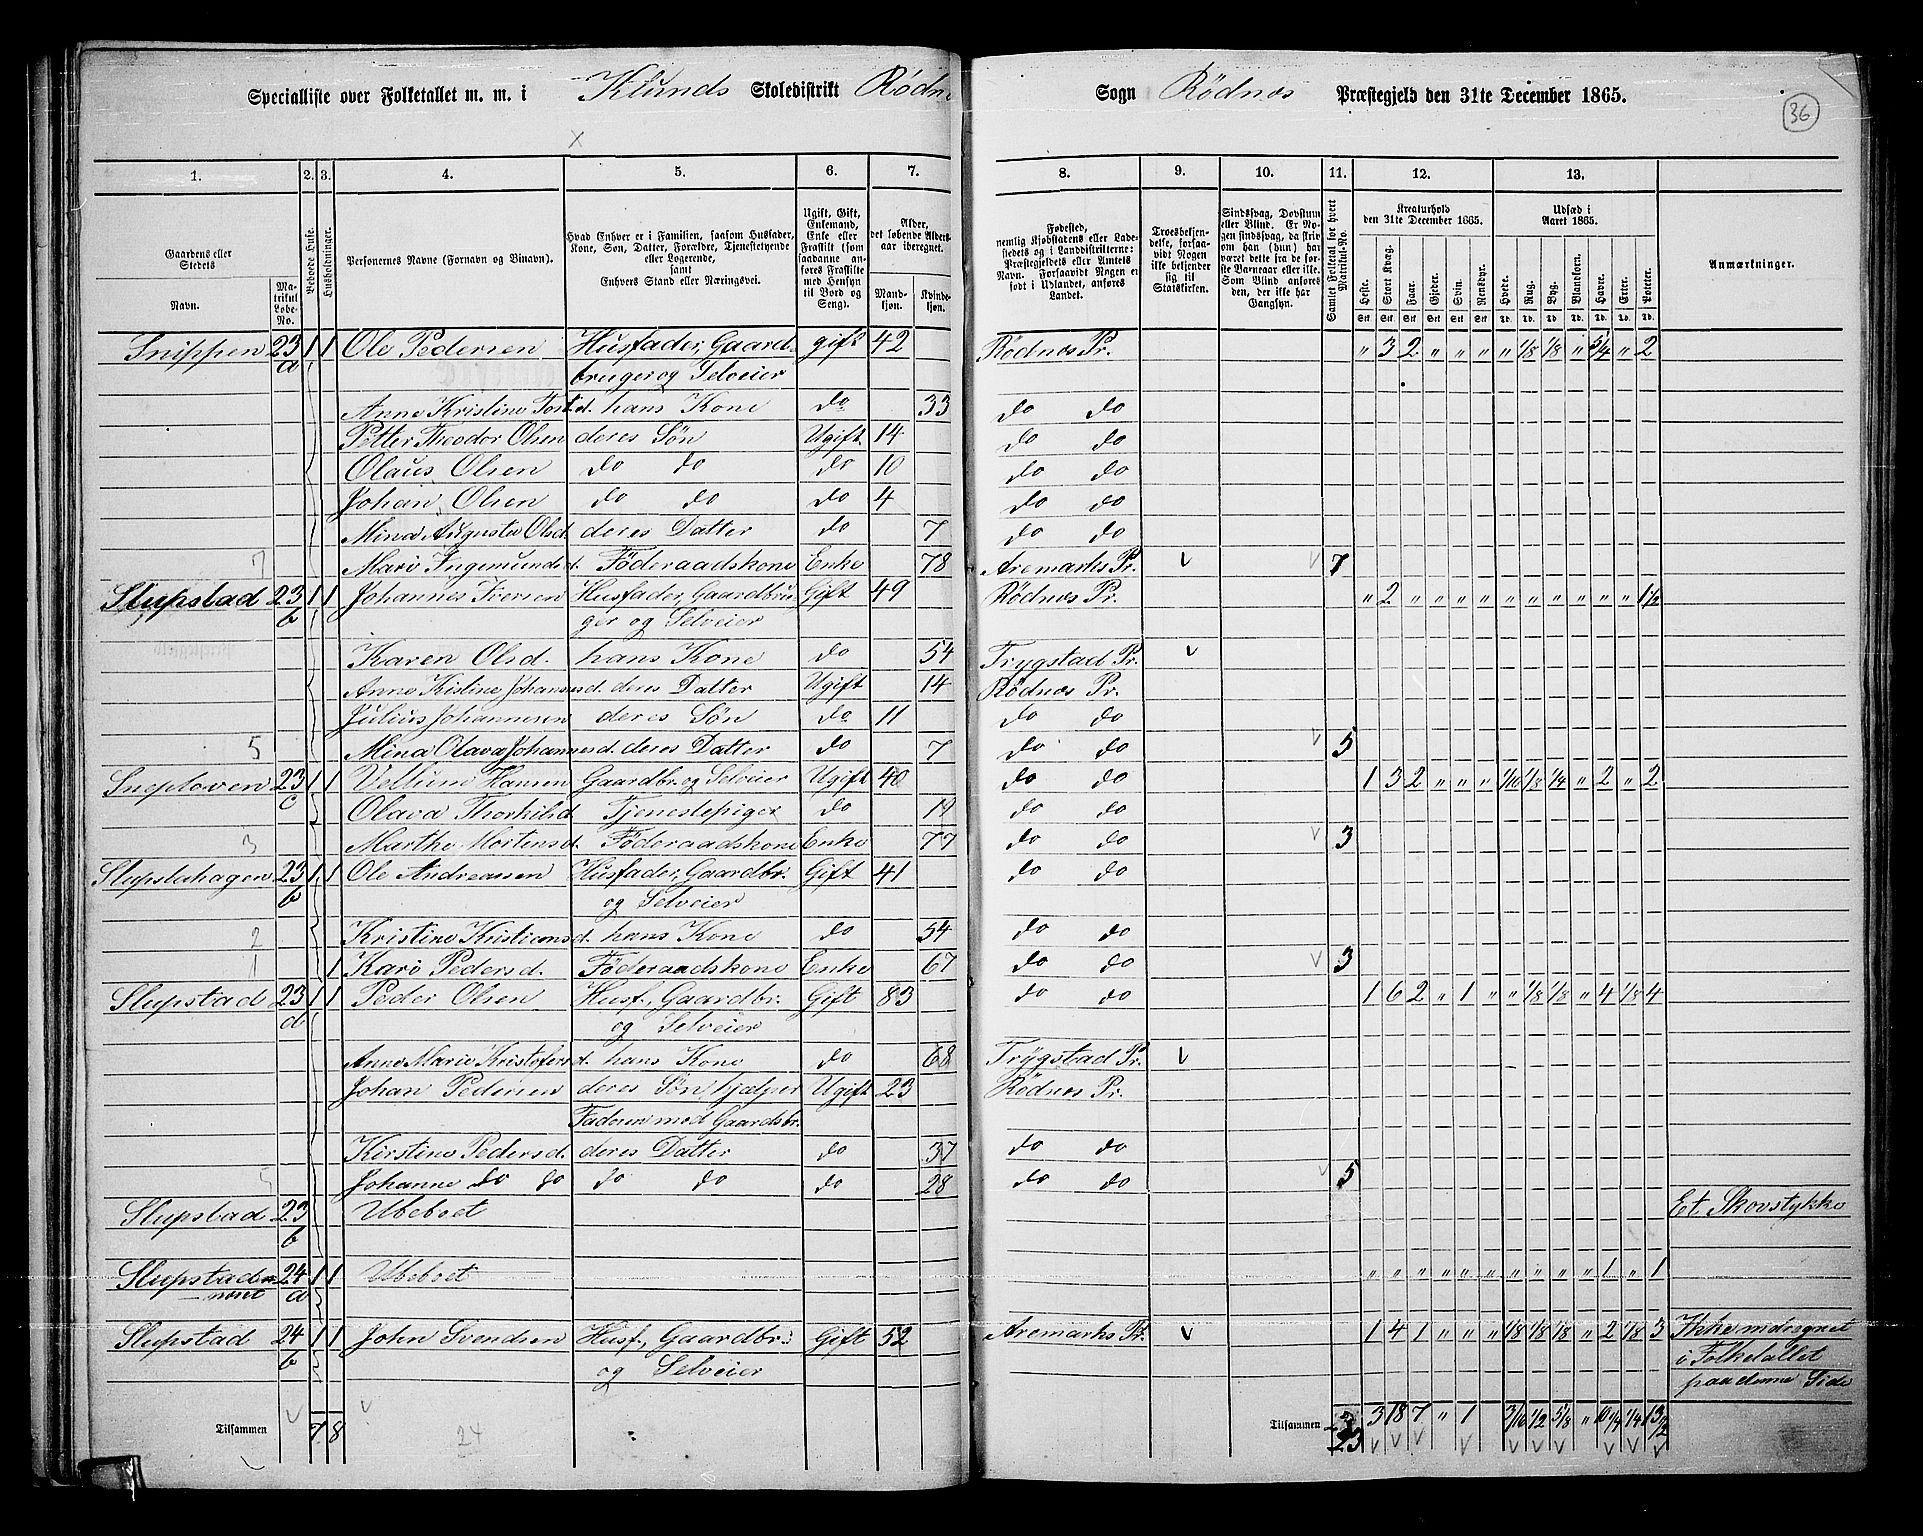 Specialliste over Folketallet m. m. i Klunds Skoledistrikt Rødn
Sogn Rødnes Præstegjeld den 31te December 1865.
36
1. 2. 3. 4. 5. 6. 7. 8. 9. 10. 11. 12. 13.
Gaardens eller Stedets Navn.
Matrikul Løbe-No.
Beboede Huse.
Husholdninger.
Personernes Navne (Fornavn og Binavn).
Hvad Enhver er i Familien, saasom Husfader, Kone, Søn, Datter, Forældre, Tjenestetyende eller Logerende, samt Enhvers Stand eller Næringsvei.
Ugift, Gift, Enkemand, Enke eller Fraskilt (som saadanne anføres Fraskilte med Hensyn til Bord og Seng).
Alder, det løbende Aldersaar iberegnet.
Mandkjøn. Kvindekjøn.
Fødested, nemlig Kjøbstadens eller Ladestedets og i Landdistrikterne: Præstegjeldets eller Amtets Navn. Forsaavidt Nogen er født i Udlandet, anføres Landet.
Troesbekjendelse, forsaavidt Nogen ikke bekjender sig til Statskirken.
Sindssvag, Døvstum eller Blind. Er Nogen sindssvag, da skrives om han (hun) har været dette fra de første Barneaar eller ikke. Som Blind anføres den, der ikke har Gangsyn.
Samlet Folketal for hvert Matrikul-No.
Kreaturhold den 31te December 1865.
Heste. Stort Kvæg. Faar. Gjeder. Svin. Rensdyr.
Udsæd i Aaret 1865.
Hvede. Rug. Byg. Blandkorn. Havre. Erter. Poteter.
Anmærkninger.
Snippen 23 a 1 1 Ole Pedersen Husfader, Gaard- gift 42 Rødnes Pr. " 3 2 " " " " 1/8 1/8 " 5/4 " 2
bruger og Selveier
Anne Kristine Tost.d. hans Kone do 33 do do
Petter Theodor Olsen deres Søn Ugift 14 do do
Olaus Olsen do do do 10 do do
Johan Olsen do do do 4 do do
Mina Augusta Olsd. deres Datter do 7 do do
7 Mari Ingemundsd. Föderaadskone Enke 78 Aremarks Pr. 7
Slupstad 23 b 1 1 Johannes Iversen Husfader, Gaardbru- Gift 49 Rødnes Pr. " 2 " " " " " " " " " " 1 1/2
ger og Selveier
Karen Olsd. hans Kone do 54 Trygstad Pr.
Anne Kistine Johannesd. deres Datter Ugift 14 Rødnes Pr.
Julius Johannesen deres Søn do 11 do do
5 Mina Olava Johannesd. deres Datter do 7 do do 5
Sneploven 23 c 1 1 Vellum Hansen Gaardbr. og Selveier Ugift 40 do do 1 3 2 " " " 1/16 1/8 1/4 " 2 " 2
Olava Thorkilsd Tjenestepige do 19 do do
3 Marthe Mortensd. Föderaadskone Enke 77 do do 3
Slupstahagen 23 b 1 1 Ole Andreassen Husfader, Gaardbr. Gift 41 do do
og Selveier
2 Kristine Kristiansd. hans Kone do 54 do do
1 1 Kari Pedersd. Föderaadskone Enke 67 do do 3
Slupstad 23 d 1 1 Peder Olsen Husf., Gaardbr. Gift 83 do do 1 6 2 " 1 " " 1/8 1/8 " 4 1/8 4
og Selveier
Anne Marie Kristofersd. hans Kone do 68 Trygstad Pr.
Johan Pedersen deres Søn, hjælper Ugift 23 Rødnes Pr.
Faderen med Gaardsbr.
Kirstine Pedersd. deres Datter do 37 do do
5 Johanne do do do do do 28 do do 5
Slupstad 23 b Ubeboet Et Skovstykke
Slupstad- 24 a 1 1 Ubeboet " " " " " " " " " " 1 " 1
næset
Slupstad 24 b 1 1 John Svendsen Husf., Gaardbr. Gift 52 Aremarks Pr. 1 4 1 " " " 1/8 1/8 1/8 " 2 1/8 3 Ikke indregnet
og Selveier i Folketallet
paa denne Side
Tilsammen 7 8 24
Tilsammen 23 3 18 7 " 1 3/16 1/2 5/8 " 10 1/4 1/4 13 1/2